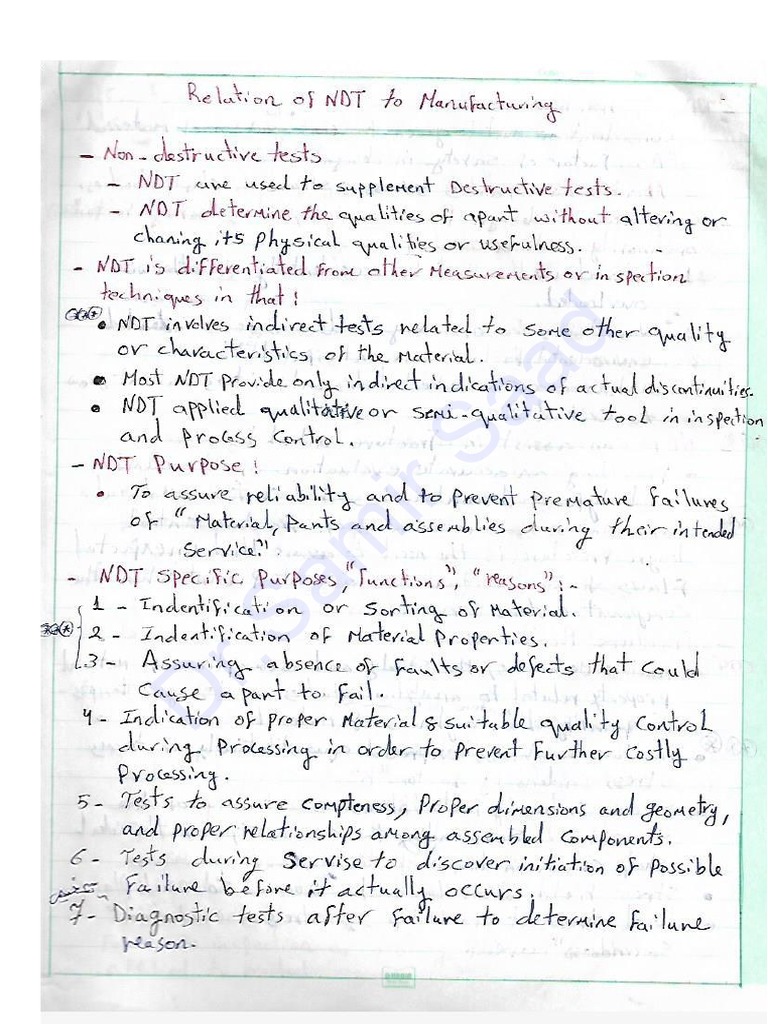 Relation of NDT to Manufacturing
- Non-destructive tests
- NDT are used to supplement Destructive tests.
- NDT determine the qualities of apart without altering or
chaning its Physical qualities or usefulness.
- NDT is differentiated from other Measurements or inspection
techniques in that :
• NDT involves indirect tests related to some other quality
or characteristics of the Material.
• Most NDT Provide only indirect indications of actual discontinuities.
• NDT applied qualitative or semi-qualitative tool in inspection
and Process Control.
- NDT Purpose :
• To assure reliability and to Prevent Premature failures
of "Material, Parts and assemblies during their intended
service."
- NDT Specific Purposes, "functions", "reasons" :-
1 - Indentification or Sorting of Material.
2 - Indentification of Material Properties.
3 - Assuring absence of faults or defects that could
Cause a part to fail.
4 - Indication of Proper Material & suitable quality Control
during Processing in order to Prevent Further Costly
Processing.
5 - Tests to assure Compteness, Proper dimensions and geometry,
and proper relationships among assembled Components.
6 - Tests during Servise to discover initiation of Possible
Failure before it actually occurs.
7 - Diagnostic tests after Failure to determine Failure
reason.
Dr. Samir Saad